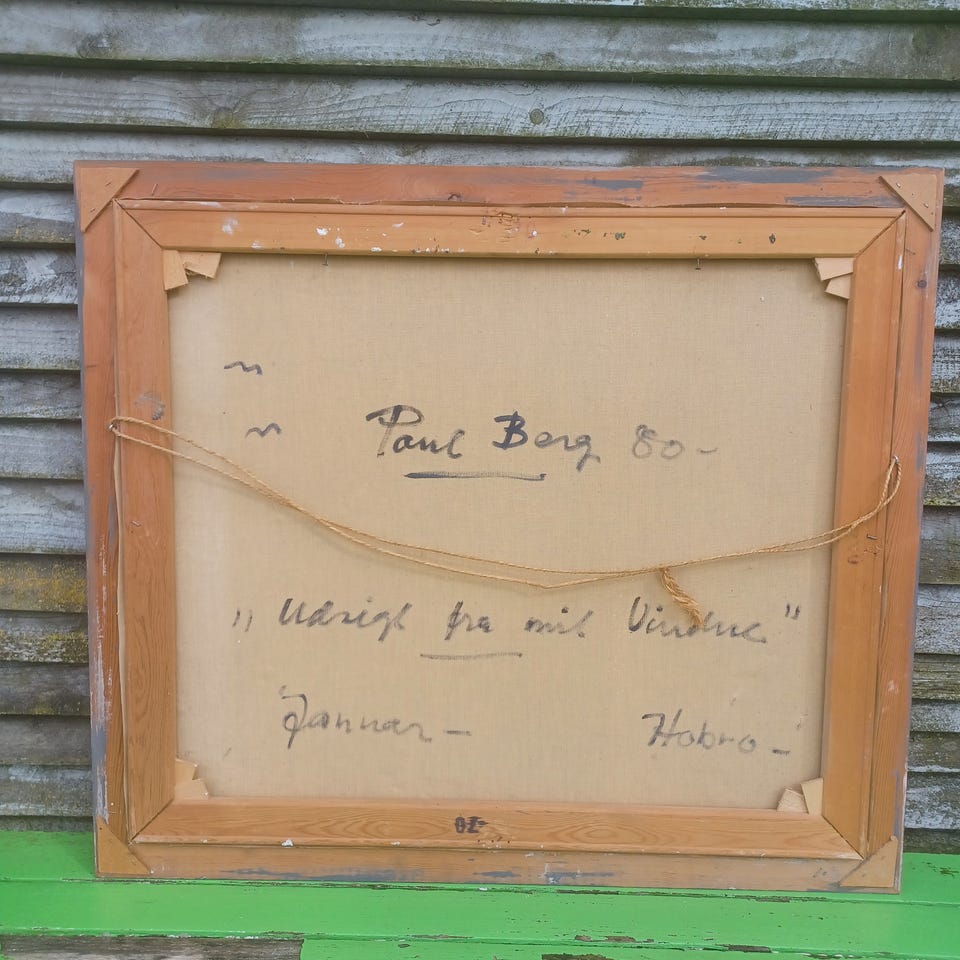 Poul Berg 80-
"Udsigt fra mit Vindue"
Januar - Hobro -
70